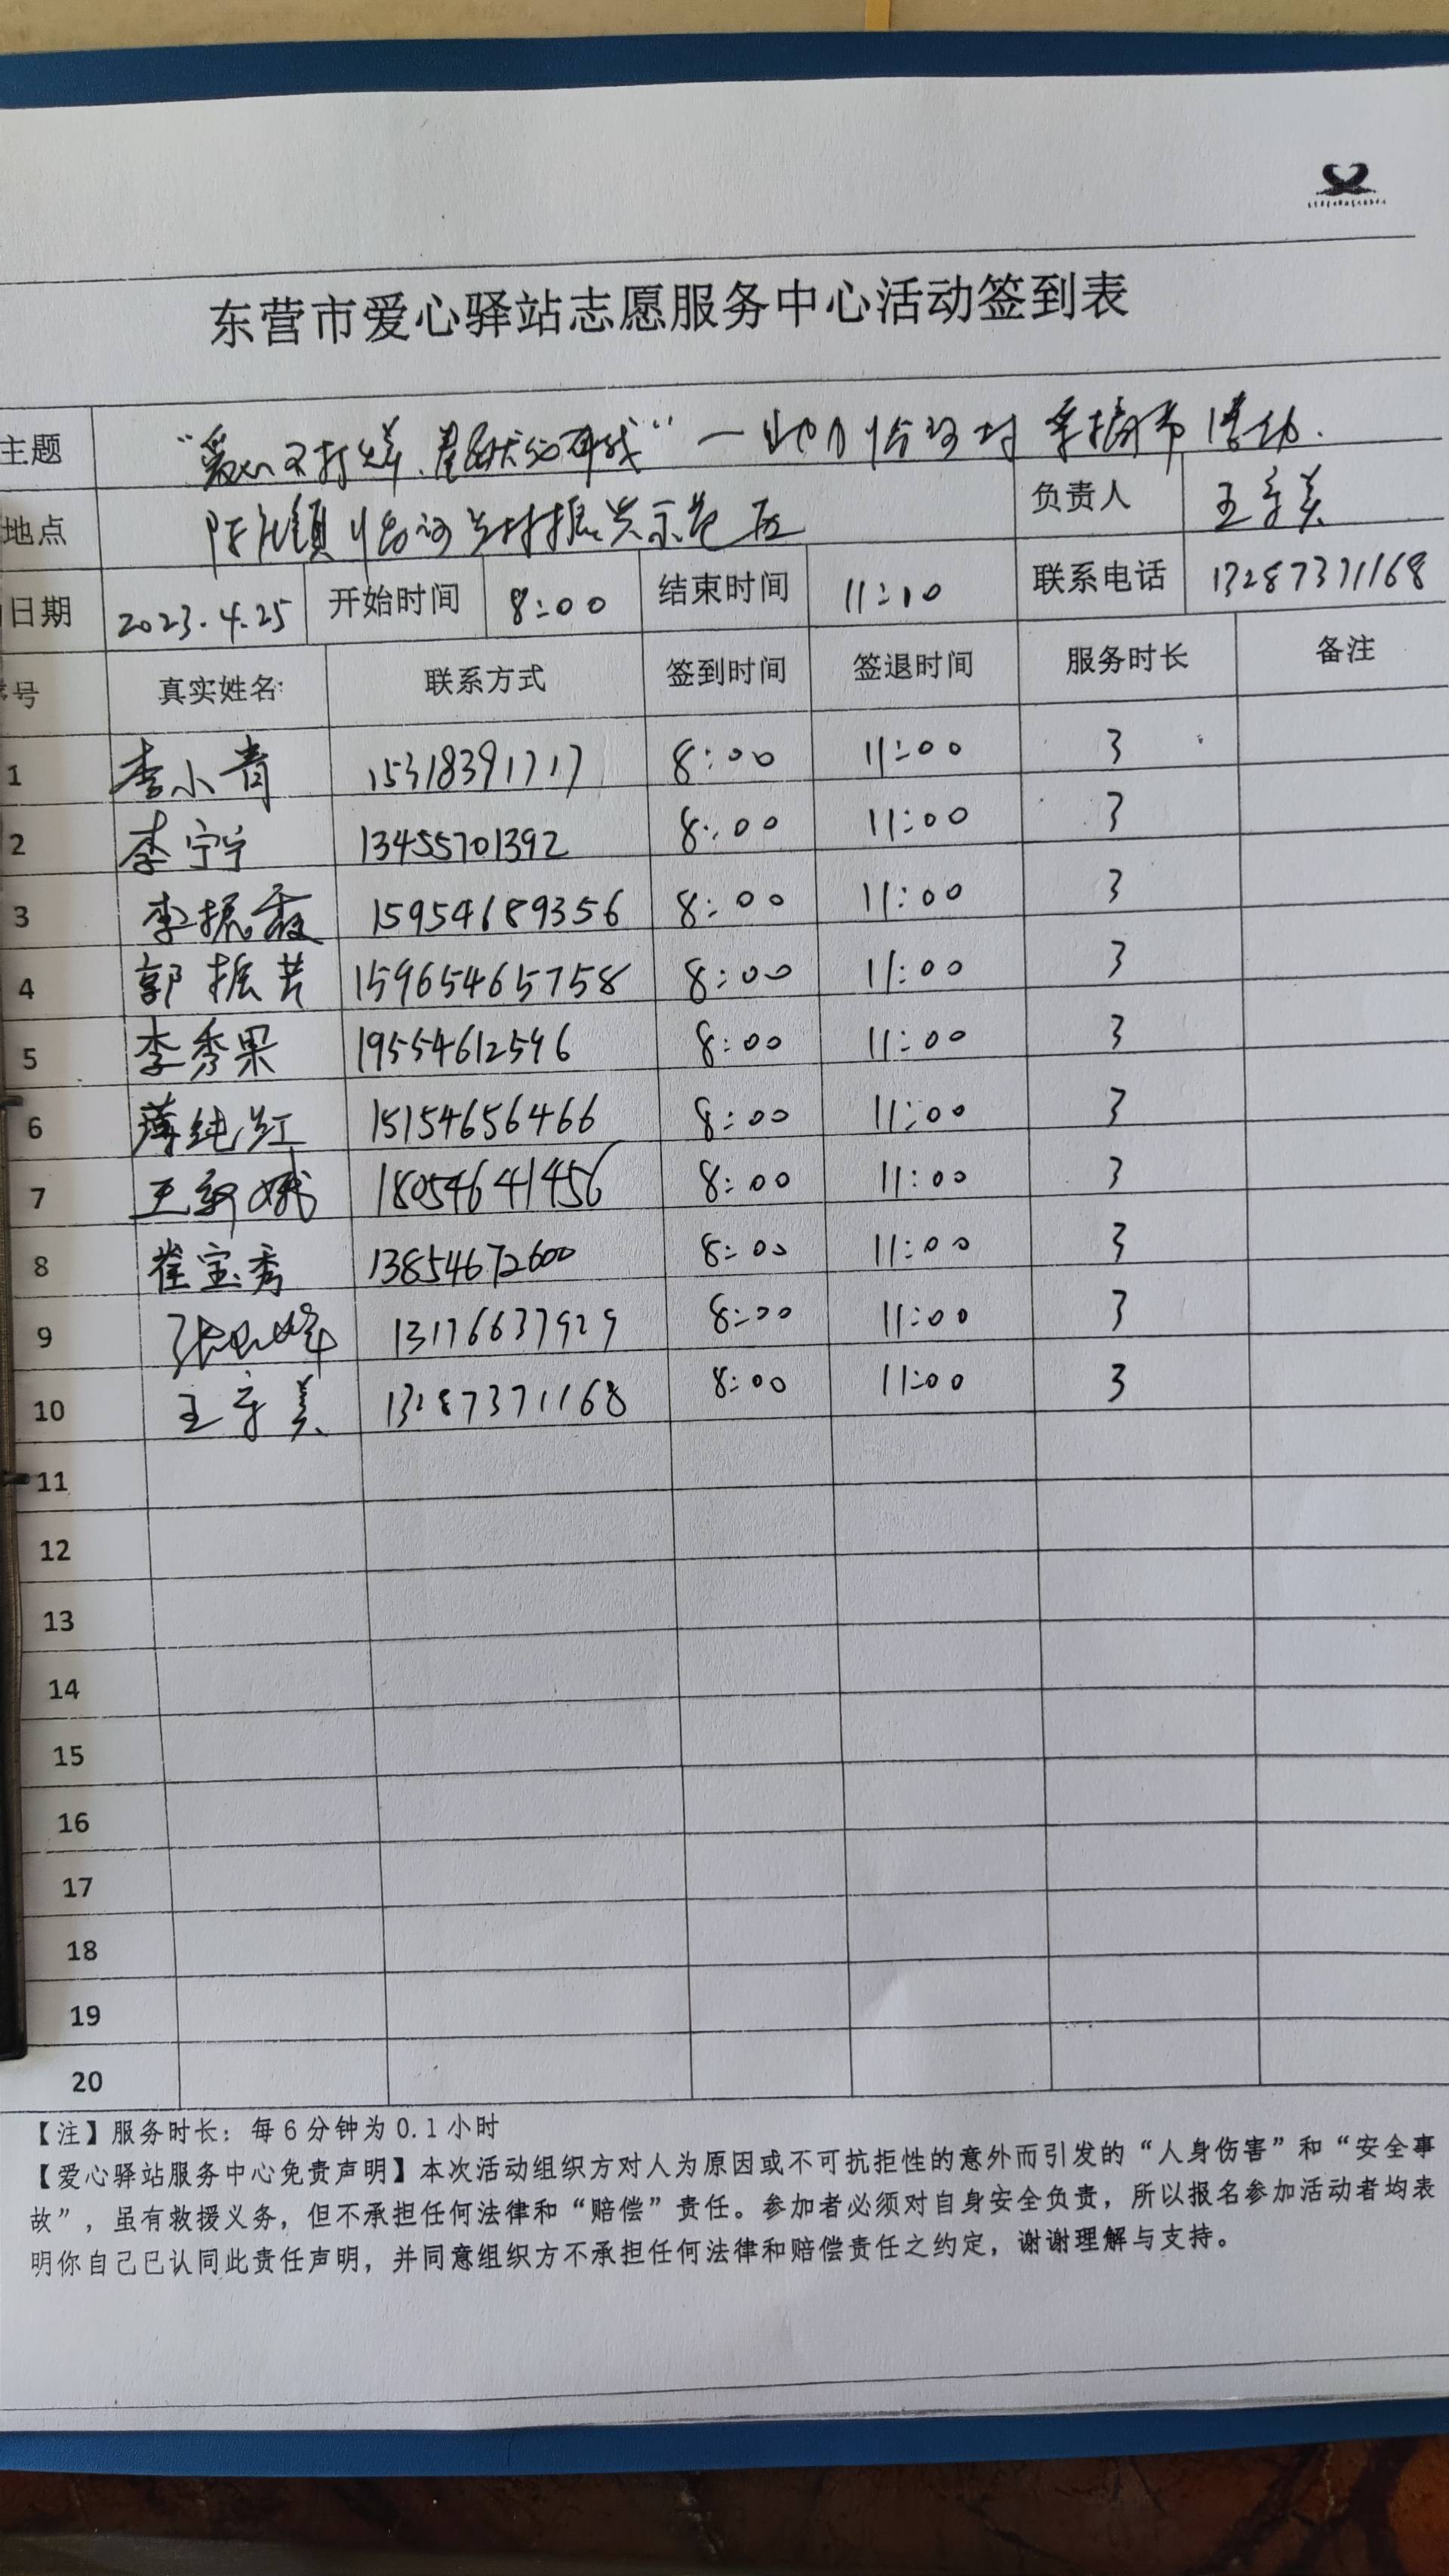 东营市爱心驿站志愿服务中心活动签到表
主题 “爱心不打烊
地点 陈庄镇 振兴示范区 负责人 王宁美
日期 2023.4.25 开始时间 8:00 结束时间 11:10 联系电话 13287371168
号 真实姓名 联系方式 签到时间 签退时间 服务时长 备注
1 李小青 15318391717 8:00 11:00 3
2 李宁宁 13455701392 8:00 11:00 3
3 李振霞 15954689356 8:00 11:00 3
4 郭振芳 15965465758 8:00 11:00 3
5 李秀果 19554612596 8:00 11:00 3
6 薄纯红 15154656466 8:00 11:00 3
7 王 娥 18054641456 8:00 11:00 3
8 崔宝秀 13854672600 8:00 11:00 3
9 张 13176637929 8:00 11:00 3
10 王宁美 13287371168 8:00 11:00 3
11
12
13
14
15
16
17
18
19
20
【注】服务时长：每6分钟为0.1小时
【爱心驿站服务中心免责声明】本次活动组织方对人为原因或不可抗拒性的意外而引发的“人身伤害”和“安全事
故”，虽有救援义务，但不承担任何法律和“赔偿”责任。参加者必须对自身安全负责，所以报名参加活动者均表
明你自己已认同此责任声明，并同意组织方不承担任何法律和赔偿责任之约定，谢谢理解与支持。